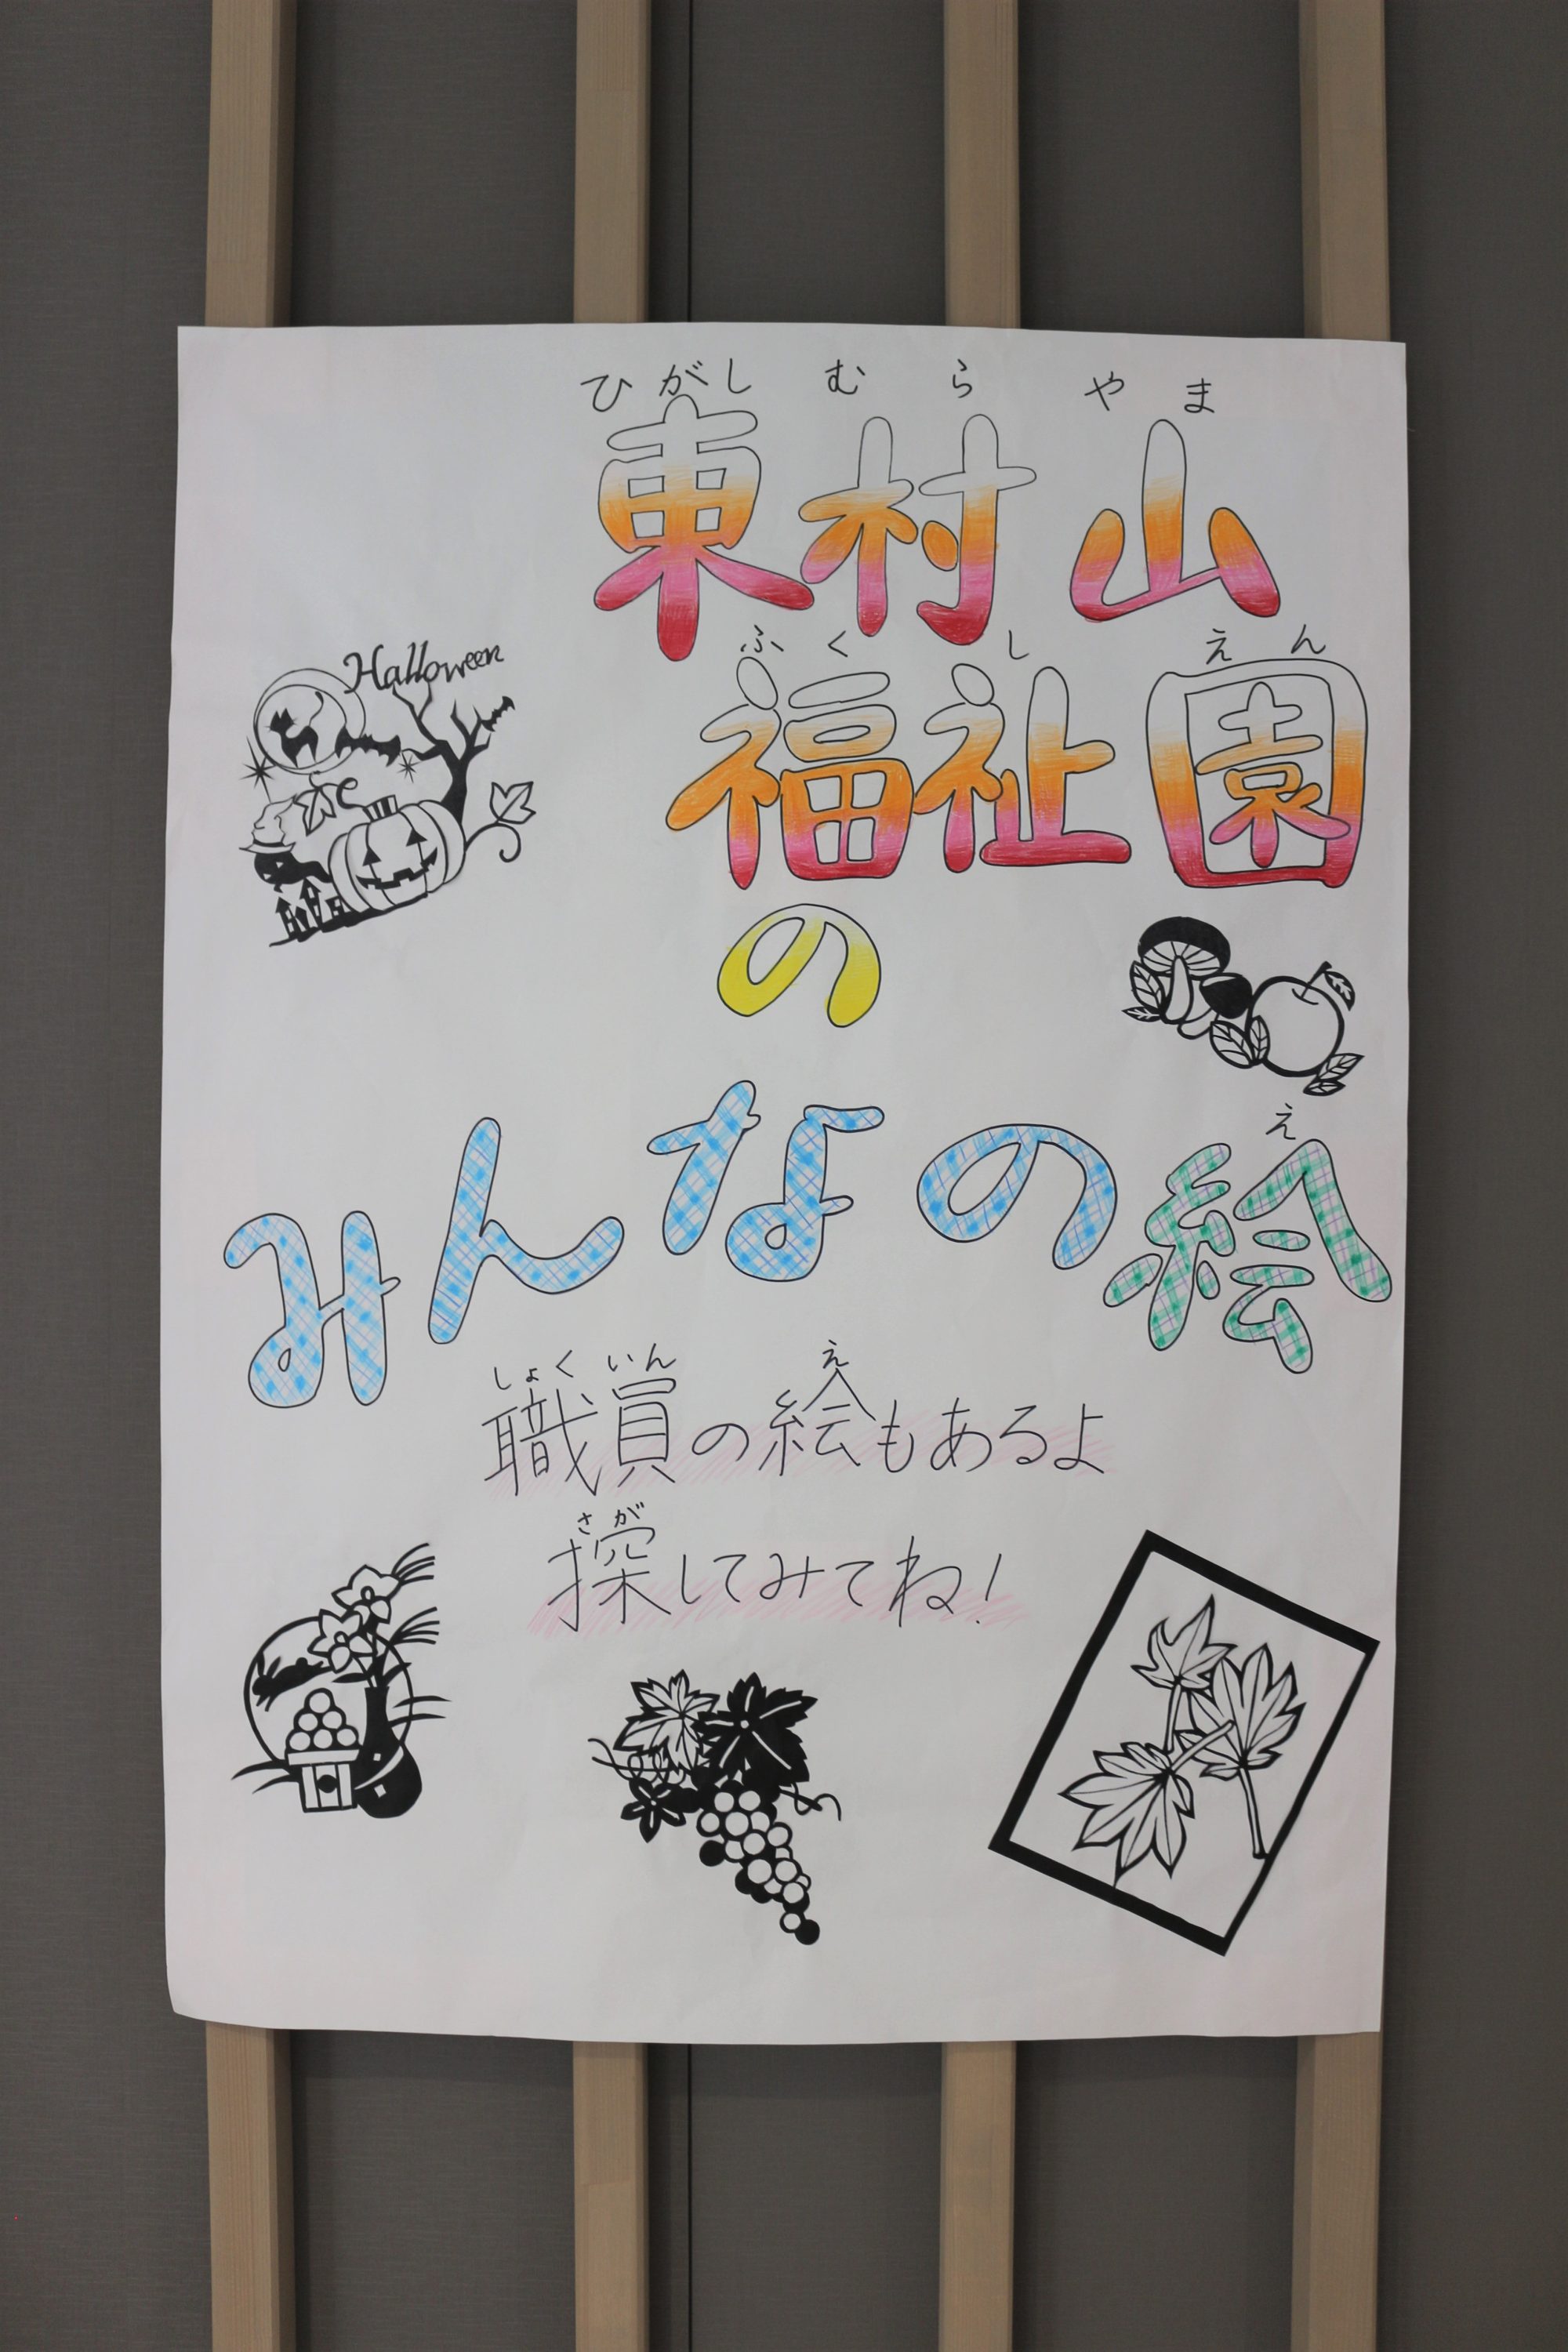 ひがし むら やま
東村山
ふくし えん
福祉園
の
Halloween
え
みんなの絵
しょくいん え
職員の絵もあるよ
さが
探してみてね!